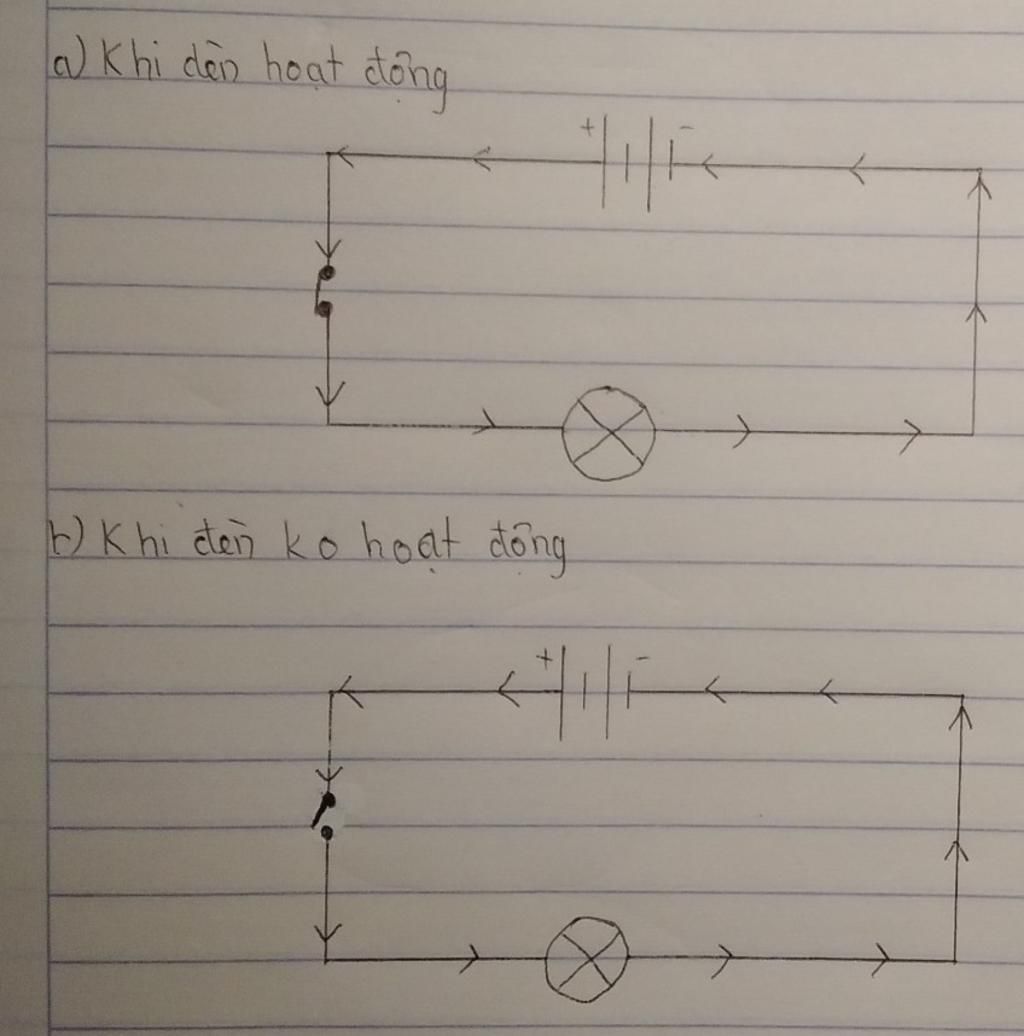 a) Khi đèn hoạt động
+ -
b) Khi đèn ko hoạt động
+ -